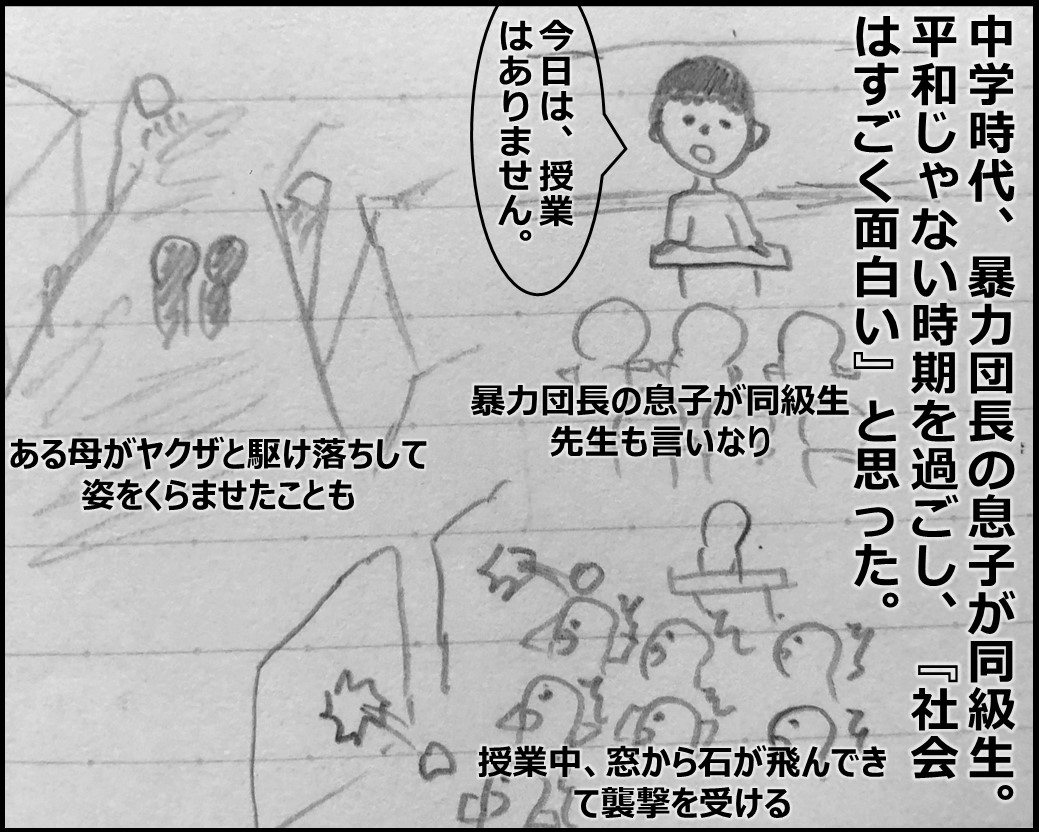 中学時代、暴力団長の息子が同級生。
平和じゃない時期を過ごし、『社会
はすごく面白い』と思った。
今日は、授業
はありません。
暴力団長の息子が同級生
先生も言いなり
ある母がヤクザと駆け落ちして
姿をくらませたことも
授業中、窓から石が飛んでき
て襲撃を受ける